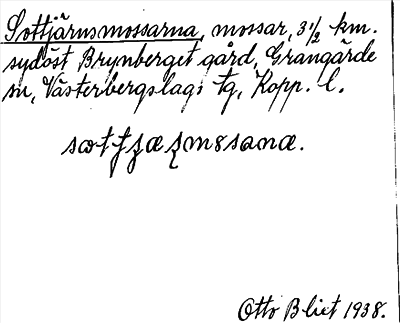 Sottjärnsmossarna, mossar, 3½ km.
sydöst Brynberget gård, Grangärde
sn, Västerbergslags tg, Kopp. l.
Otto Blixt 1938.